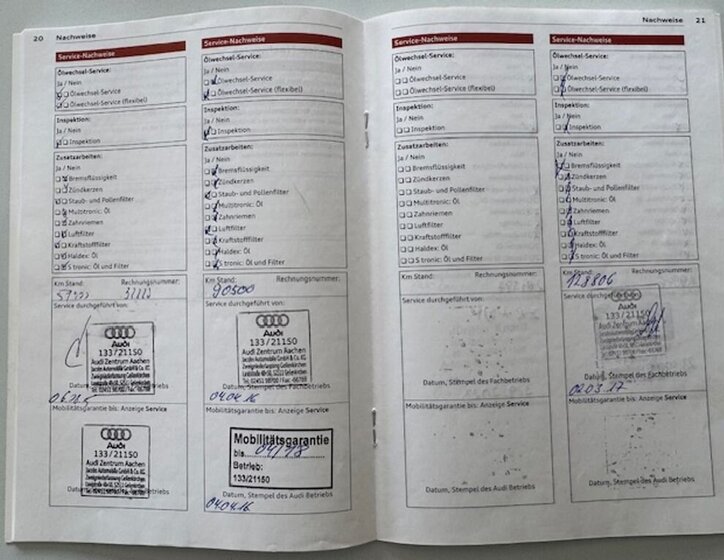 20 Nachweise
Service-Nachweise
Ölwechsel-Service:
Ja / Nein
Ölwechsel-Service
Ölwechsel-Service (flexibel)
Inspektion:
Ja / Nein
Inspektion
Zusatzarbeiten:
Ja / Nein
Bremsflüssigkeit
Zündkerzen
Staub- und Pollenfilter
Multitronic: Öl
Zahnriemen
Luftfilter
Kraftstofffilter
Haldex: Öl
S tronic: Öl und Filter
Km Stand: Rechnungsnummer:
Service durchgeführt von:
Audi
133/21150
Audi Zentrum Aachen
Jacobs Automobile GmbH & Co. KG
Zweigniederlassung Geilenkirchen
Datum, Stempel des Fachbetriebs
Mobilitätsgarantie bis: Anzeige Service
Audi
133/21150
Audi Zentrum Aachen
Jacobs Automobile GmbH & Co. KG
Zweigniederlassung Geilenkirchen
Datum, Stempel des Audi Betriebs
Service-Nachweise
Ölwechsel-Service:
Ja / Nein
Ölwechsel-Service
Ölwechsel-Service (flexibel)
Inspektion:
Ja / Nein
Inspektion
Zusatzarbeiten:
Ja / Nein
Bremsflüssigkeit
Zündkerzen
Staub- und Pollenfilter
Multitronic: Öl
Zahnriemen
Luftfilter
Kraftstofffilter
Haldex: Öl
S tronic: Öl und Filter
Km Stand: Rechnungsnummer:
90500
Service durchgeführt von:
Audi
133/21150
Audi Zentrum Aachen
Jacobs Automobile GmbH & Co. KG
Zweigniederlassung Geilenkirchen
Datum, Stempel des Fachbetriebs
04.04.16
Mobilitätsgarantie bis: Anzeige Service
Mobilitätsgarantie
bis 04/18
Betrieb:
133/21150
Datum, Stempel des Audi Betriebs
04.04.16
Nachweise 21
Service-Nachweise
Ölwechsel-Service:
Ja / Nein
Ölwechsel-Service
Ölwechsel-Service (flexibel)
Inspektion:
Ja / Nein
Inspektion
Zusatzarbeiten:
Ja / Nein
Bremsflüssigkeit
Zündkerzen
Staub- und Pollenfilter
Multitronic: Öl
Zahnriemen
Luftfilter
Kraftstofffilter
Haldex: Öl
S tronic: Öl und Filter
Km Stand: Rechnungsnummer:
Service durchgeführt von:
Datum, Stempel des Fachbetriebs
Mobilitätsgarantie bis: Anzeige Service
Datum, Stempel des Audi Betriebs
Service-Nachweise
Ölwechsel-Service:
Ja / Nein
Ölwechsel-Service
Ölwechsel-Service (flexibel)
Inspektion:
Ja / Nein
Inspektion
Zusatzarbeiten:
Ja / Nein
Bremsflüssigkeit
Zündkerzen
Staub- und Pollenfilter
Multitronic: Öl
Zahnriemen
Luftfilter
Kraftstofffilter
Haldex: Öl
S tronic: Öl und Filter
Km Stand: Rechnungsnummer:
128806
Service durchgeführt von:
Audi
133/21150
Audi Zentrum Aachen
Datum, Stempel des Fachbetriebs
02.03.17
Mobilitätsgarantie bis: Anzeige Service
Datum, Stempel des Audi Betriebs